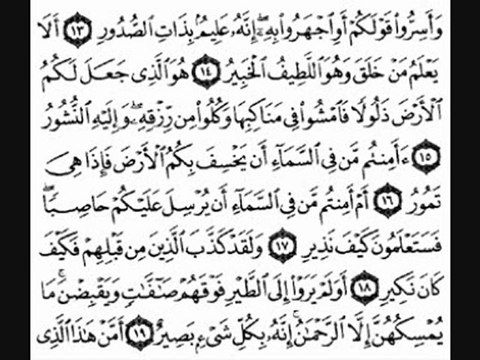 وَأَسِرُّوا۟ قَوْلَكُمْ أَوِ ٱجْهَرُوا۟ بِهِۦٓ إِنَّهُۥ عَلِيمٌۢ بِذَاتِ ٱلصُّدُورِ ١٣ أَلَا
يَعْلَمُ مَنْ خَلَقَ وَهُوَ ٱللَّطِيفُ ٱلْخَبِيرُ ١٤ هُوَ ٱلَّذِى جَعَلَ لَكُمُ
ٱلْأَرْضَ ذَلُولًا فَٱمْشُوا۟ فِى مَنَاكِبِهَا وَكُلُوا۟ مِن رِّزْقِهِۦ ۖ وَإِلَيْهِ ٱلنُّشُورُ
١٥ ءَأَمِنتُم مَّن فِى ٱلسَّمَآءِ أَن يَخْسِفَ بِكُمُ ٱلْأَرْضَ فَإِذَا هِىَ
تَمُورُ ١٦ أَمْ أَمِنتُم مَّن فِى ٱلسَّمَآءِ أَن يُرْسِلَ عَلَيْكُمْ حَاصِبًا ۖ
فَسَتَعْلَمُونَ كَيْفَ نَذِيرِ ١٧ وَلَقَدْ كَذَّبَ ٱلَّذِينَ مِن قَبْلِهِمْ فَكَيْفَ
كَانَ نَكِيرِ ١٨ أَوَلَمْ يَرَوْا۟ إِلَى ٱلطَّيْرِ فَوْقَهُمْ صَٰٓفَّٰتٍ وَيَقْبِضْنَ ۚ مَا
يُمْسِكُهُنَّ إِلَّا ٱلرَّحْمَٰنُ ۚ إِنَّهُۥ بِكُلِّ شَىْءٍۭ بَصِيرٌ ١٩ أَمَّنْ هَٰذَا ٱلَّذِى